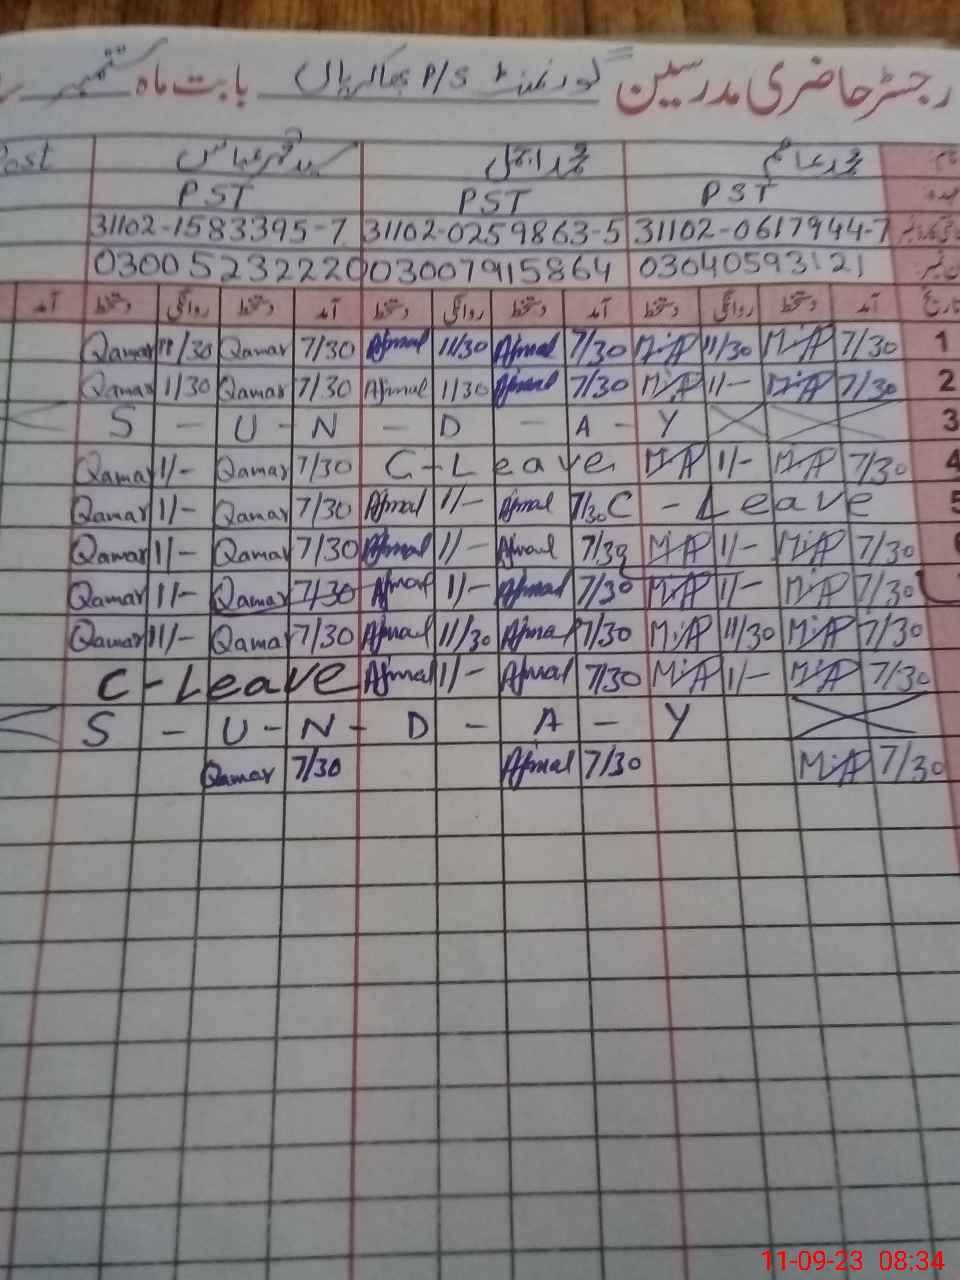 رجسٹر حاضری مدرسین گورنمنٹ P/S بابت ماہ ستمبر
محمد عاصم محمد اجمل قمر عباس Post
PST PST PST
31102-1583395-7 31102-0259863-5 31102-0617944-7
03005232220 03007915864 03040593121
آمد دستخط روانگی دستخط آمد دستخط روانگی دستخط آمد دستخط روانگی دستخط آمد
Qamar 11/30 Qamar 7/30 Ajmal 11/30 Ajmal 7/30 M.A 11/30 M.A 7/30 1
Qamar 1/30 Qamar 7/30 Ajmal 1/30 Ajmal 7/30 M.A 1/- M.A 7/30 2
S - U - N - D - A - Y 3
Qamar 1/- Qamar 7/30 C-Leave M.A 1/- M.A 7/30 4
Qamar 1/- Qamar 7/30 Ajmal 1/- Ajmal 7/30 C-Leave 5
Qamar 1/- Qamar 7/30 Ajmal 1/- Ajmal 7/30 M.A 1/- M.A 7/30 6
Qamar 1/- Qamar 7/30 Ajmal 1/- Ajmal 7/30 M.A 1/- M.A 7/30
Qamar 11/- Qamar 7/30 Ajmal 11/30 Ajmal 7/30 M.A 11/30 M.A 7/30
C-Leave Ajmal 1/- Ajmal 7/30 M.A 1/- M.A 7/30
S - U - N - D - A - Y
Qamar 7/30 Ajmal 7/30 M.A 7/30
11-09-23 08:34